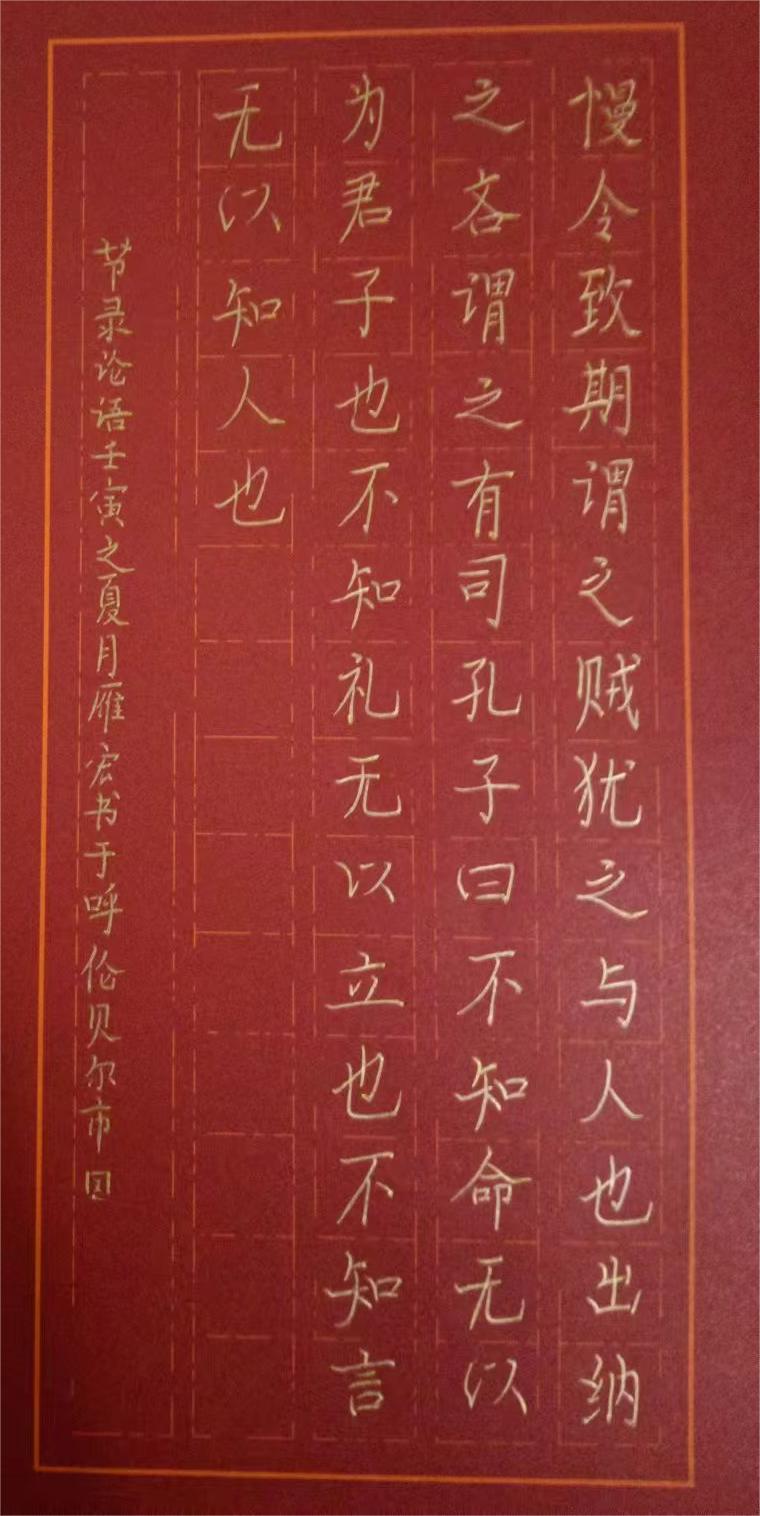 慢令致期谓之贼犹之与人也出纳
之吝谓之有司孔子曰不知命无以
为君子也不知礼无以立也不知言
无以知人也
节录论语壬寅之夏月雁宏书于呼伦贝尔市